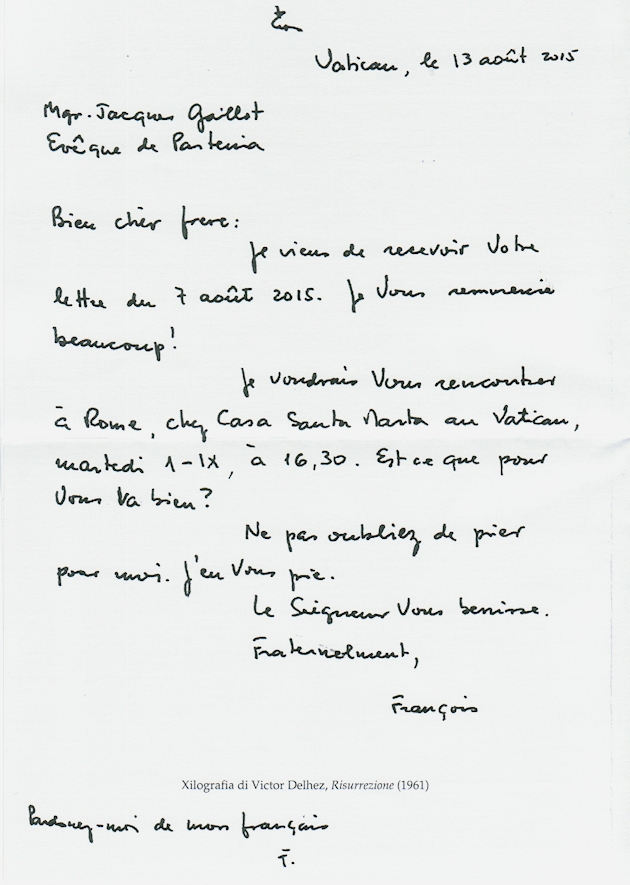 Vatican, le 13 août 2015
Mgr. Jacques Gaillot
Evêque de Partenia
Bien chèr frere:
Je viens de recevoir Votre
lettre du 7 août 2015. Je Vous remmercie
beaucoup!
Je voudrais Vous rencontrer
à Rome, chez Casa Santa Marta au Vatican,
martedi 1-IX, à 16,30. Est ce que pour
Vous va bien?
Ne pas oubliez de prier
pour moi. J'en Vous prie.
Le Seigneur Vous benisse.
Fraternelment,
François
Xilografia di Victor Delhez, Risurrezione (1961)
Pardonez-moi de mon français
F.